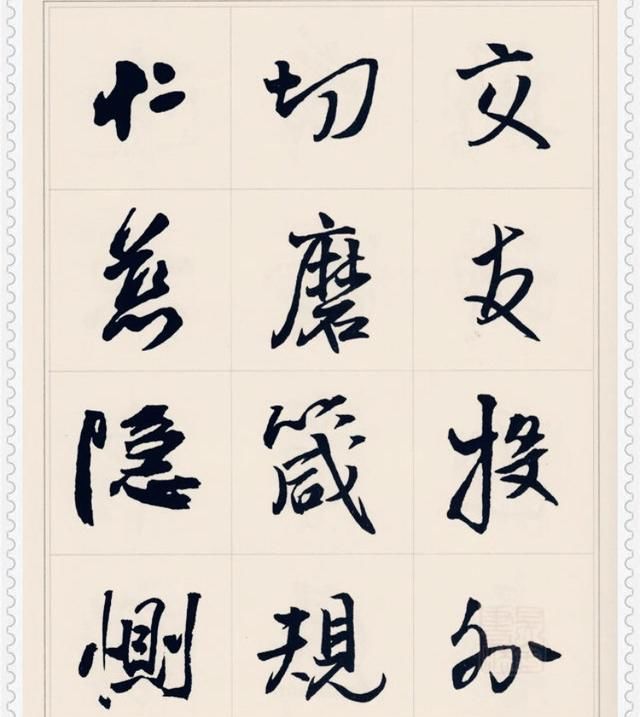 交友投分
切磨箴規
仁慈隐惻